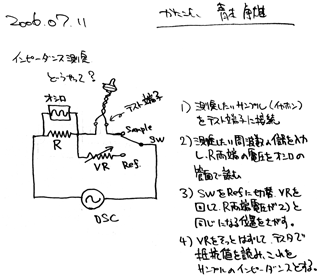 2006.07.11
インピーダンス測定
どうやって？
オシロ
テスト端子
R
Sample
SW
VR
Ref.
OSC
1) 測定したいサンプル(イヤホン)
をテスト端子に接続
2) 測定したい周波数の信号を入力
し、R両端の電圧をオシロの
管面で読む
3) SWをRefに切替、VRを
回して、R両端電圧が2)と
同じになる位置をさがす。
4) VRをそっとはずして、テスタで
抵抗値を読み、これを
サンプルのインピーダンスとする。